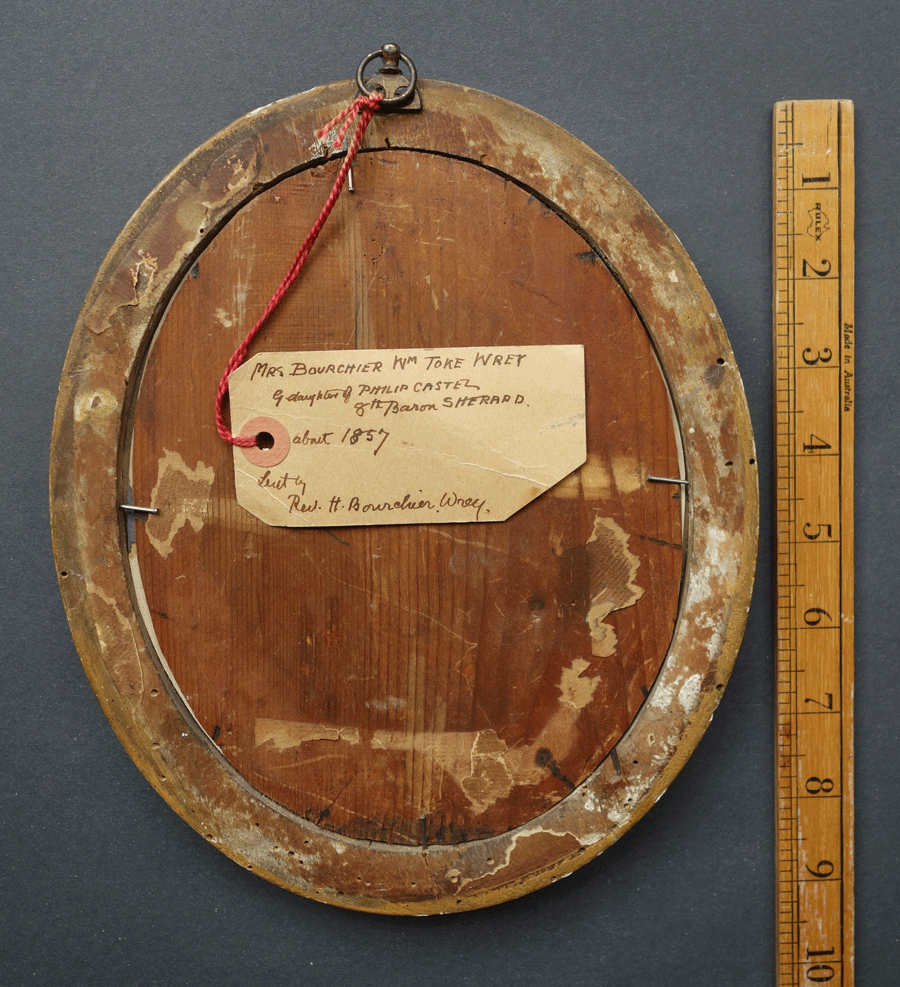 Mrs BOURCHIER Wm TOKE WREY
G. daughter of PHILIP CASTEL
8th Baron SHERARD.
about 1857
Lent by
Rev. H. Bourchier. Wrey.
1
RULEX
2
3
Made in Australia
4
5
6
7
8
9
10